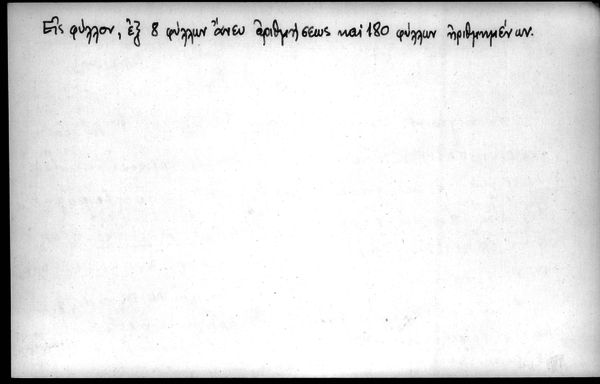 Εἰς φύλλον, ἐξ 8 φύλλων ἄνευ ἀριθμήσεως καὶ 180 φύλλων ἠριθμημένων.